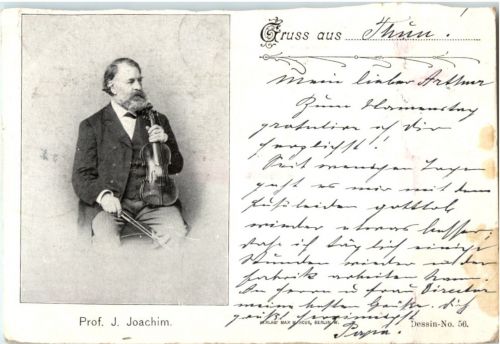 Gruss aus Thun.
Mein lieber Arthur
Zum Namenstag
gratulire ich dir
herzlichst!
Seit wenigen Tagen
geht es mir mit dem
Fußleiden gottlob
wieder etwas besser,
daß ich täglich einige
Stunden wieder in der
Fabrik arbeiten kann.
An Herrn u. Frau Director
meine besten Grüße. Dich
grüßt herzinnigst
Papa.
Prof. J. Joachim.
VERLAG MAX MARCUS, BERLIN, W.
Dessin-No. 56.